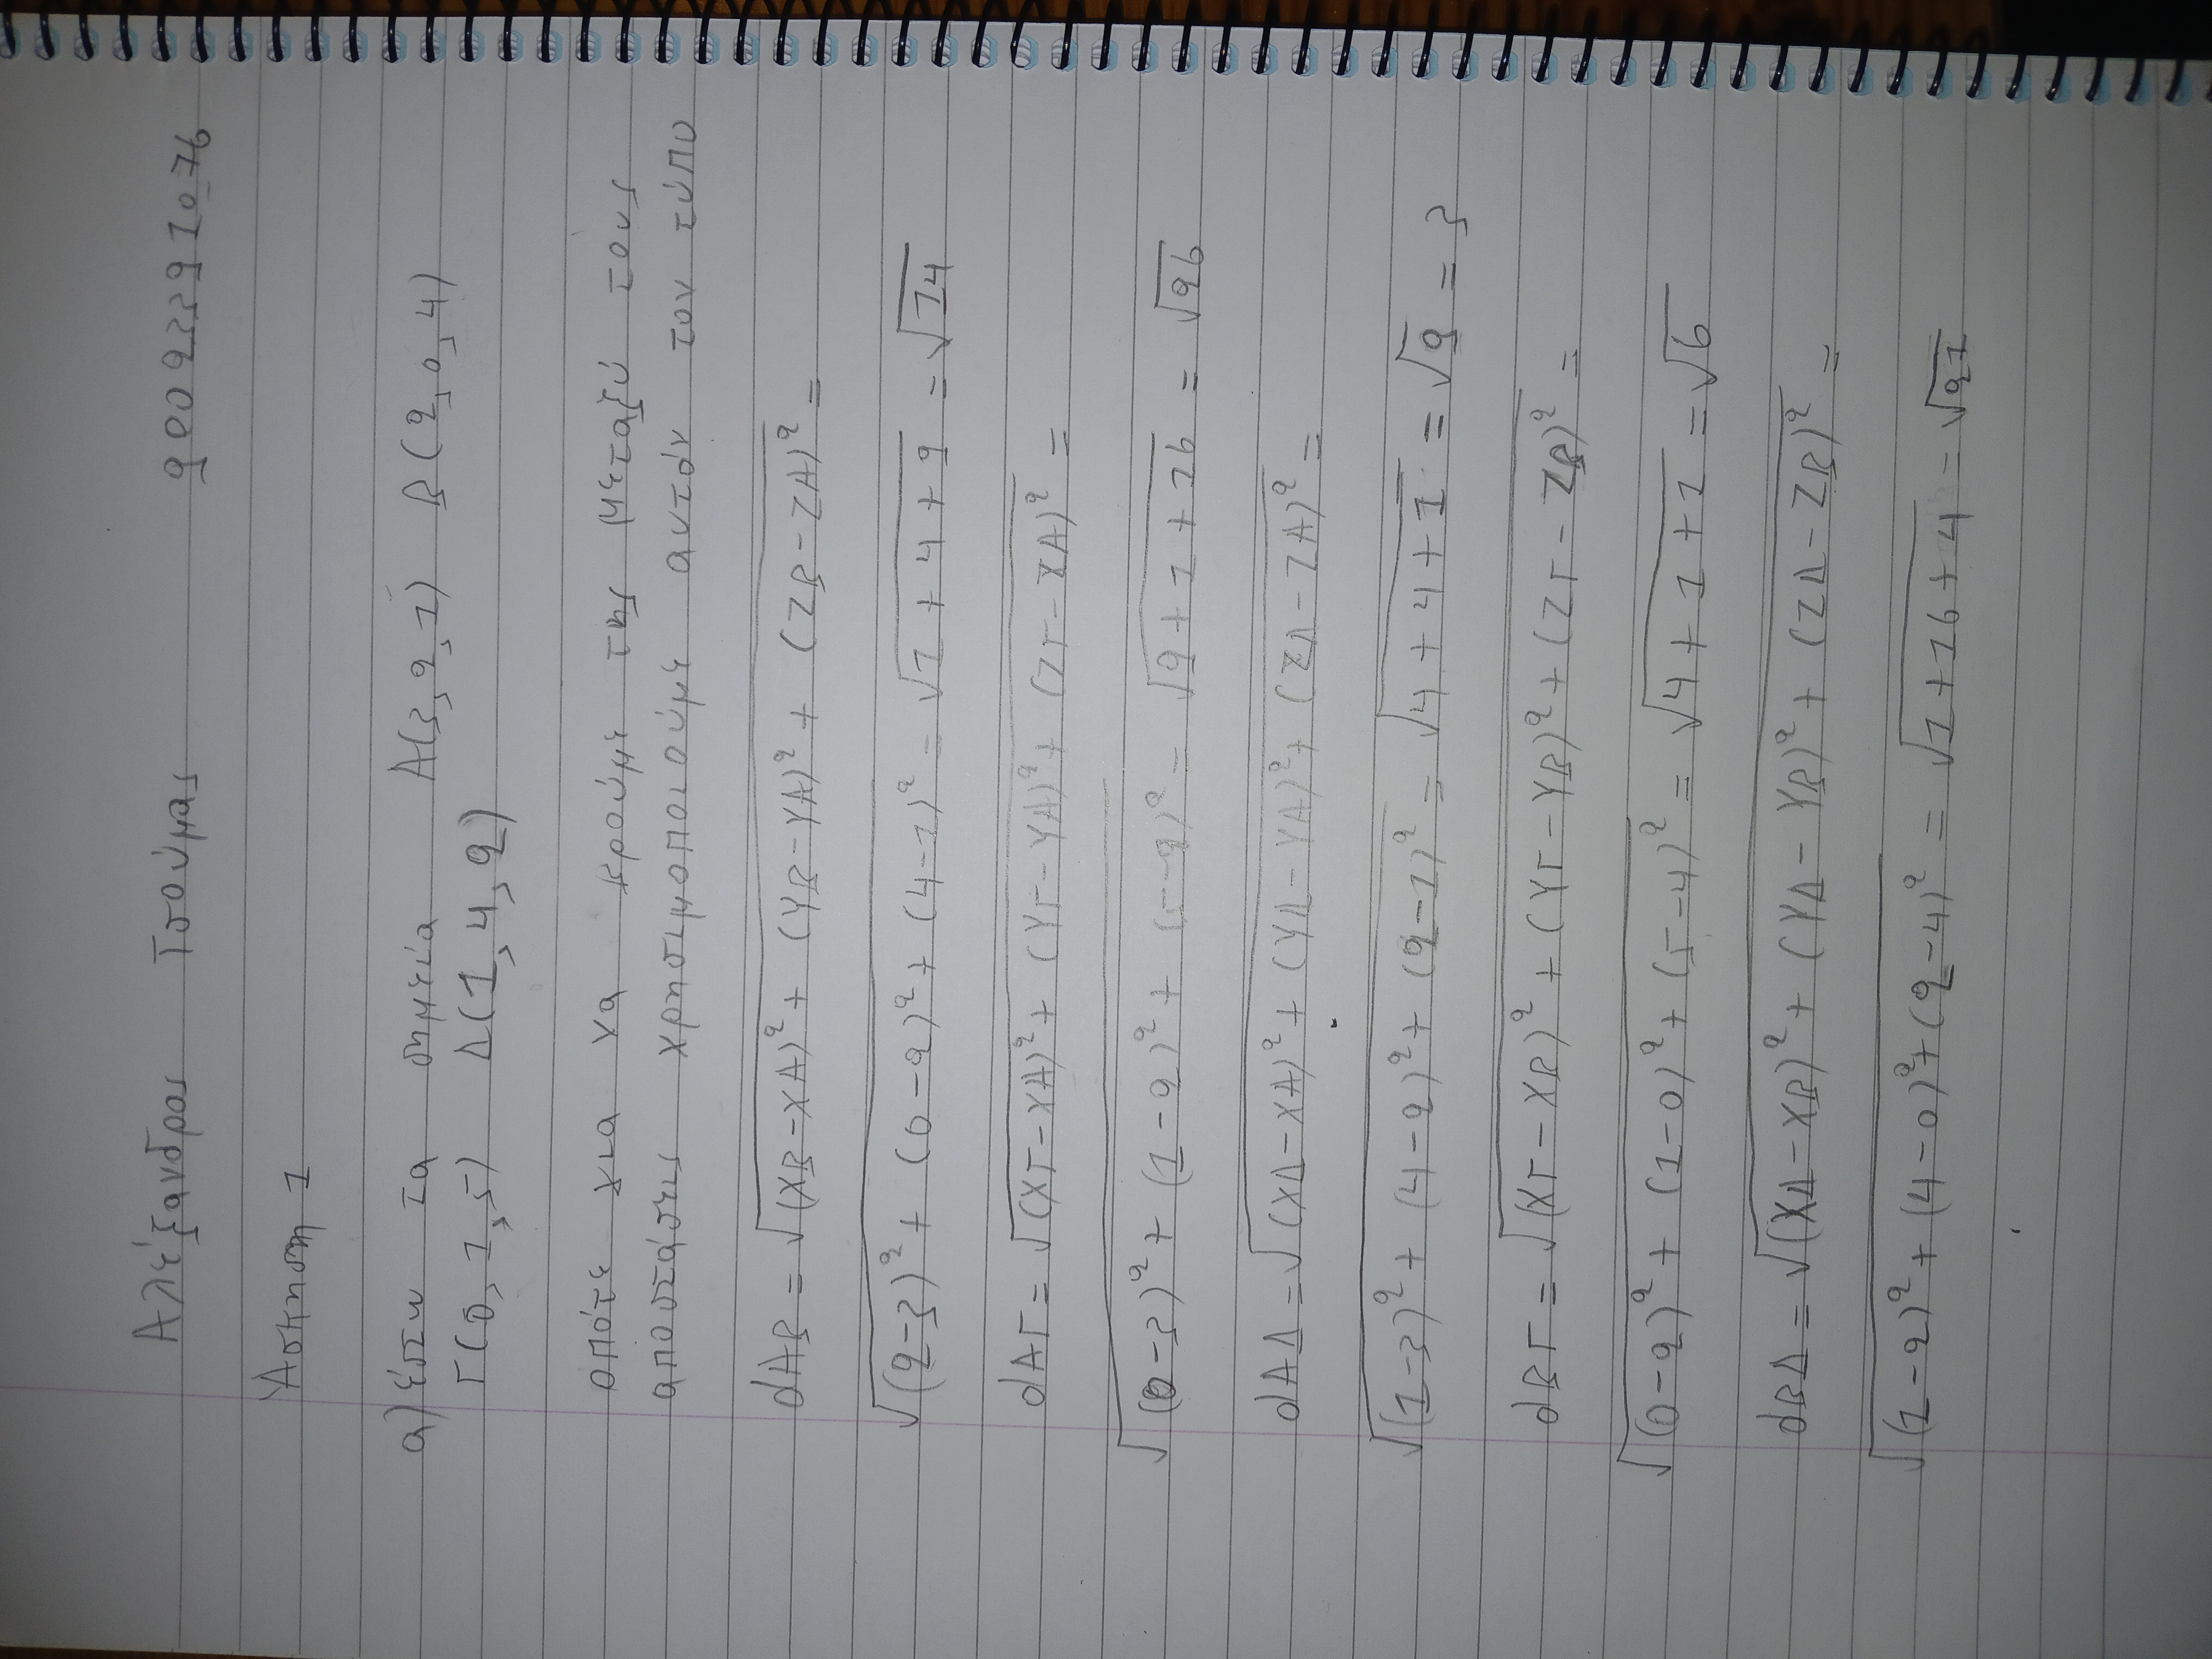 Αλέξανδρος Τσούμας 90023391076
Άσκηση 1
α) έστω τα σημεία A(3,2,1) B(2,0,4)
Γ(0,1,5) Δ(1,4,2)
οπότε για να βρούμε τις μεταξύ τους
αποστάσεις χρησιμοποιούμε αυτόν τον τύπο
dAB = √(XB-XA)² + (YB-YA)² + (ZB-ZA)² =
√(2-3)² + (0-2)² + (4-1)² = √1+4+9 = √14
dAΓ = √(XΓ-XA)² + (YΓ-YA)² + (ZΓ-ZA)² =
√(0-3)² + (1-2)² + = √9+1+16 = √26
dAΔ = √(XΔ-XA)² + (YΔ-YA)² + (ZΔ-ZA)² =
√(1-3)² + (4-2)² + (2-1)² = √4+4+1 = √9 = 3
dBΓ = √(XΓ-XB)² + (YΓ-YB)² + (ZΓ-ZB)² =
√(0-2)² + (1-0)² + (5-4)² = √4+1+1 = √6
dBΔ = √(XΔ-XB)² + (YΔ-YB)² + (ZΔ-ZB)² =
√(1-2)² + (4-0)² + (2-4)² = √1+16+4 = √21